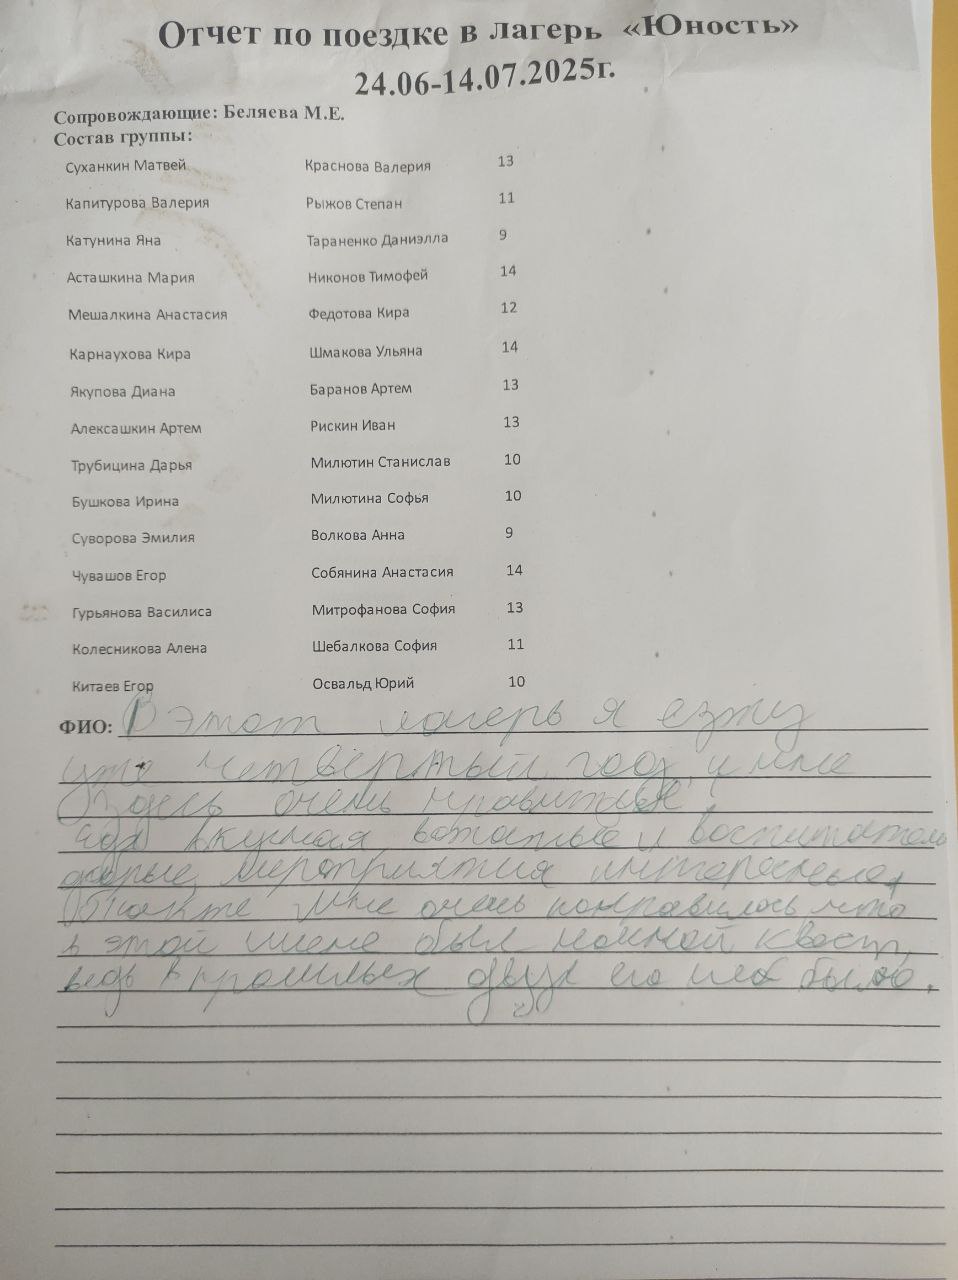 Отчет по поездке в лагерь «Юность»
24.06-14.07.2025г.
Сопровождающие: Беляева М.Е.
Состав группы:
Суханкин Матвей Краснова Валерия 13
Капитурова Валерия Рыжов Степан 11
Катунина Яна Тараненко Даниэлла 9
Асташкина Мария Никонов Тимофей 14
Мешалкина Анастасия Федотова Кира 12
Карнаухова Кира Шмакова Ульяна 14
Якупова Диана Баранов Артем 13
Алексашкин Артем Рискин Иван 13
Трубицина Дарья Милютин Станислав 10
Бушкова Ирина Милютина Софья 10
Суворова Эмилия Волкова Анна 9
Чувашов Егор Собянина Анастасия 14
Гурьянова Василиса Митрофанова София 13
Колесникова Алена Шебалкова София 11
Китаев Егор Освальд Юрий 10
ФИО: В этот лагерь я езжу
уже четвёртый год, и мне
здесь очень нравиться.
Еда вкусная, вожатые и воспитатель
добрые, мероприятия интересные.
Также мне очень понравилось что
в этой смене был ночной квест,
ведь в прошлых двух его не было.